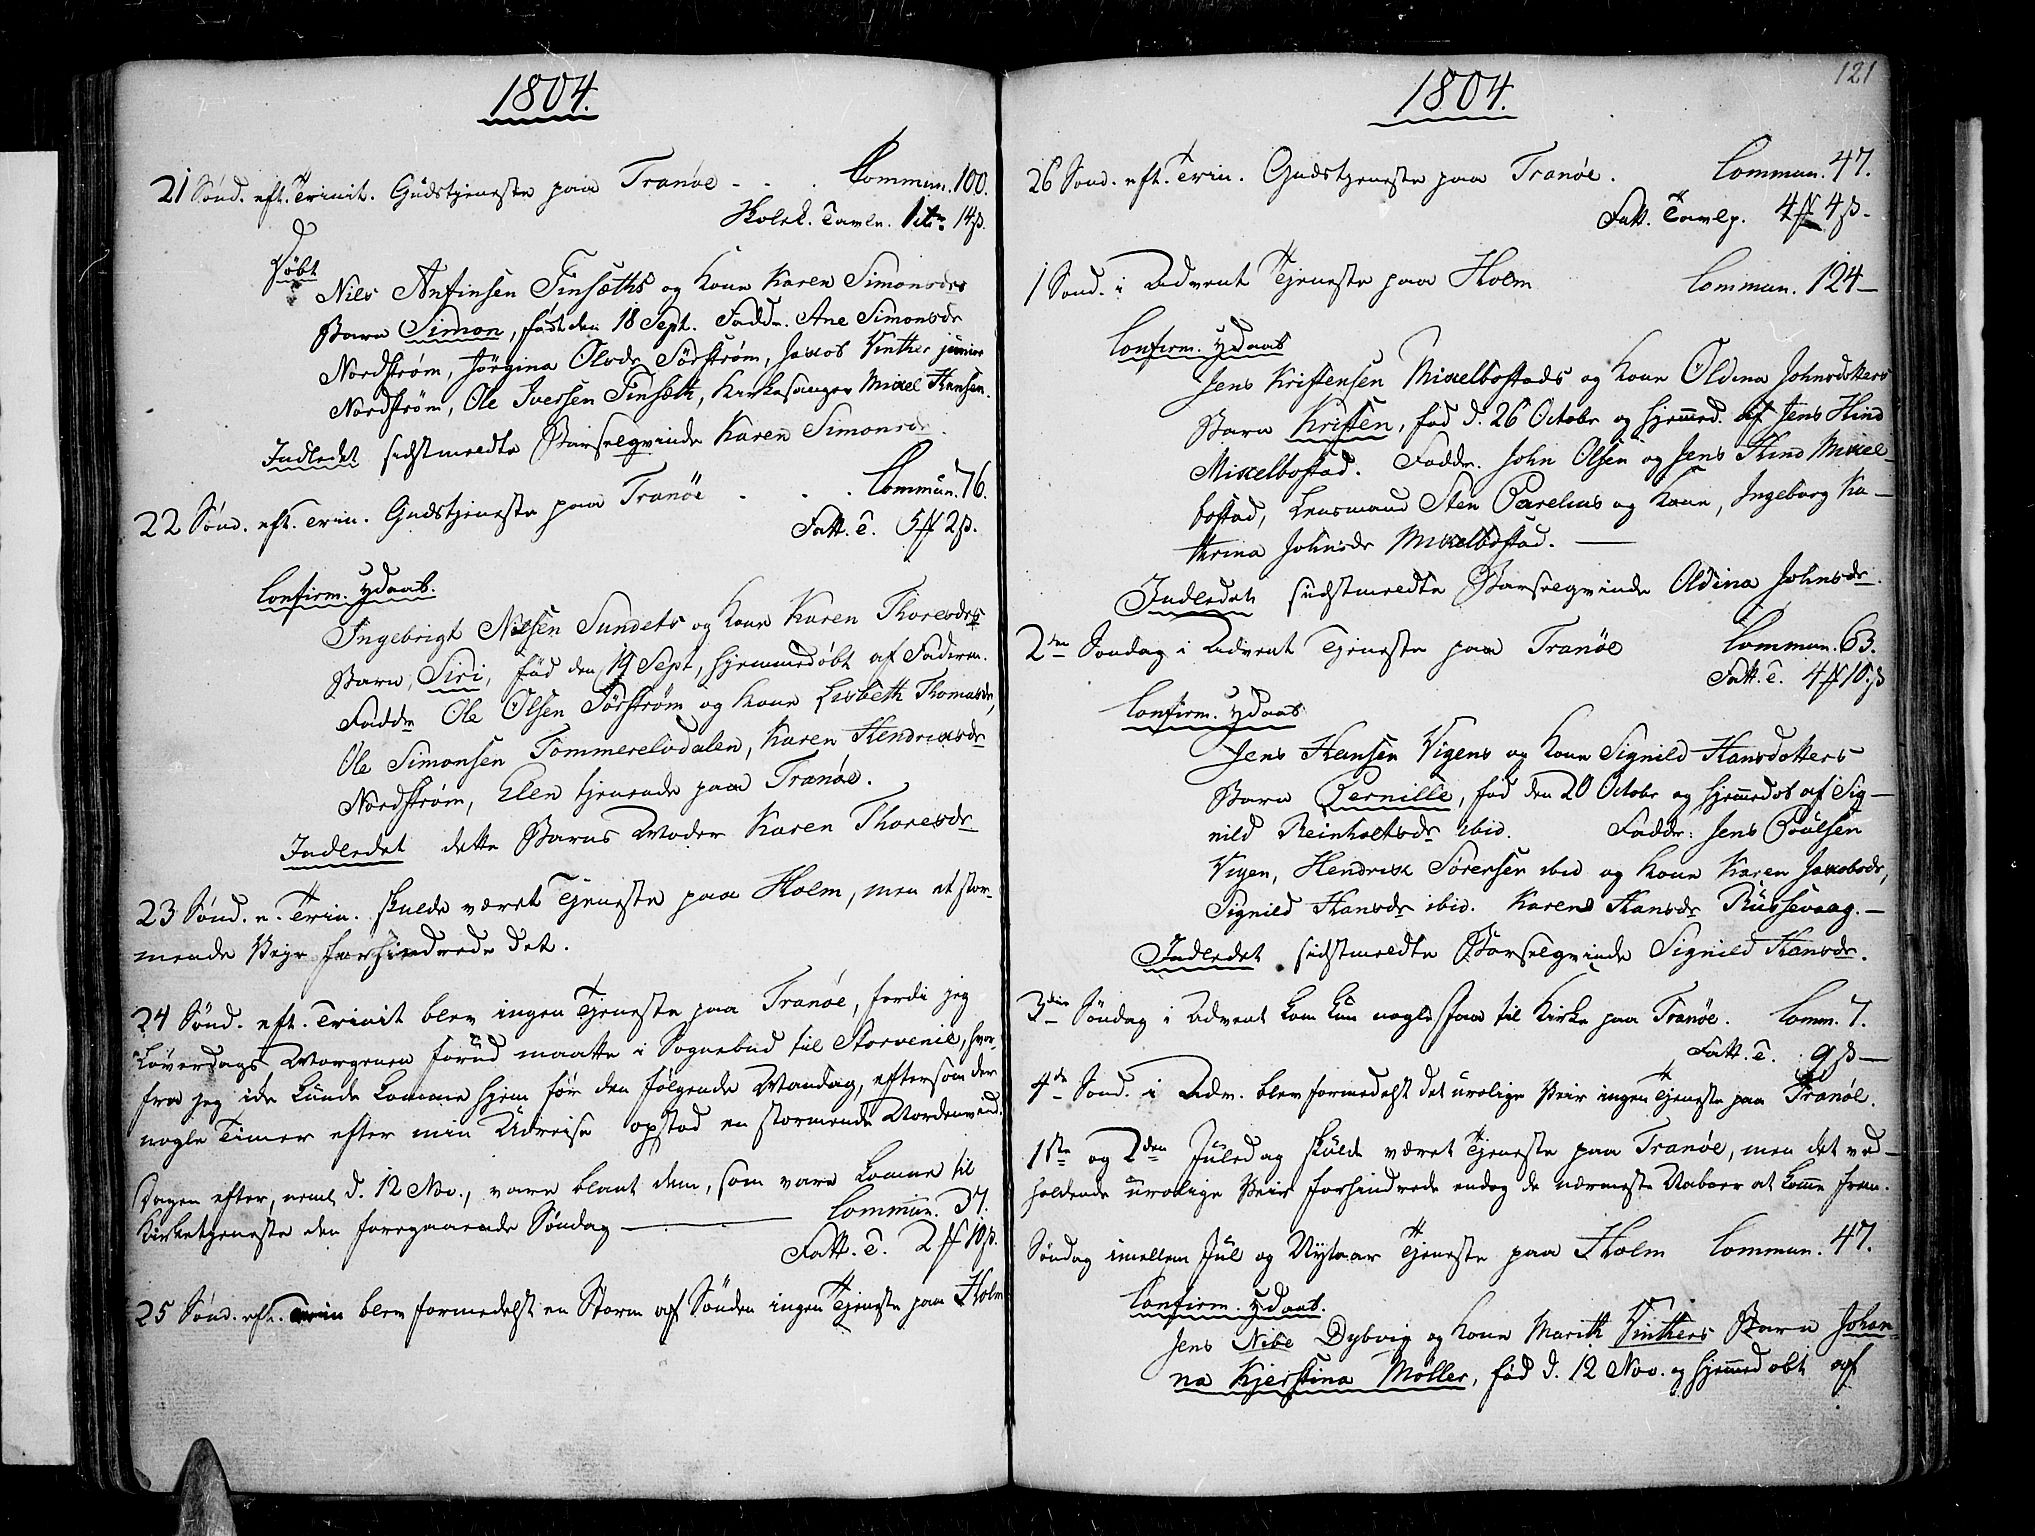 1804.
21 Sønd. eft. Trinit. Gudstjeneste paa Tranøe - . . Commun. 100.
Holek. Tavle. 1 14ß.
Døbt
Nils Anfinsen Finsæths og Kone Karen Simonsdrs
Barn Simon, født den 18 Sept. Faddr. Ane Simonsdr
Nordstrøm, Jørgina Olsdr Sørstrøm, Jacob Vinther junior
Nordstrøm, Ole Iversen Finsæth, Kirkesanger Mikel Hansen.
Indledet sidstmeldte Barselqvinde Karen Simonsdr.
22 Sønd. eft. Trin. Gudstjeneste paa Tranöe - . . Commun. 76.
Fatt. T. 5 2ß.
Confirm. Hdaab.
Ingebrigt Nilsen Sundets og Kone Karen Thoresdrs
Barn, Siri, fød den 19 Sept, hjemmedøbt af Faderen.
Faddr Ole Olsen Sørstrøm og Kone Lisbeth Thomasdr,
Ole Simonsen Tommerelvdalen, Karen Hendrixsdr
Nordstrøm, Elen tjenende paa Tranøe.
Indledet dette Barns Moder Karen Thoresdr
23 Sønd. e. Trin. skulde været Tjeneste paa Holm, men et stor-
mende Veir forhindrede det.
24 Sønd. eft. Trinit blev ingen Tjeneste paa Tranøe, fordi jeg
Løverdags Morgenen forud maatte i Sognebud til Storvenie, hvor-
fra jeg ikke kunde komme hjem før den følgende Mandag, eftersom der
nogle Timer efter min Udreise opstod en stormende Nordenvind.
Dagen efter, neml d. 12 Nov., vare blant dem, som vare komne til
Kirketjeneste den foregaaende Søndag — Commun. 37.
Fatt. T. 2 10ß.
25 Sønd. eft. Trin blev formedelst en Storm af Sønden ingen Tjeneste paa Holm
121
1804.
26 Sønd. eft. Trin. Gudstjeneste paa Tranøe. Commun. 47.
Fatt. Tavlp. 4 4ß.
1 Sønd. i Advent Tjeneste paa Holm Commun. 124—
Confirm. Hdaab
Jens Kristensen Mikelbostads og Kone Oldina Johnsdotters
Barn Kristen, fød d. 26 Octobr og hjemmed. af Jens Hind
Mikelbostad. Faddr. John Olsen og Jens Hind Mikel-
bostad, Lensmand Sten Parelius og Kone, Ingeborg Ka-
thrina Johnsdr Mikelbostad. —
Indledet sidstmeldte Barselqvinde Oldina Johnsdr.
2den Søndag i Advent Tjeneste paa Tranöe Commun. 63.
Fatt. T. 4 10ß
Confirm. Hdaab
Jens Hansen Vigens og Kone Signild Hansdotters
Barn Pernille, fød den 20 Octobr og hjemmedøb af Sig-
nild Reinholtsdr ibid. Faddr: Jens Poülsen
Vigen, Hendrik Sørensen ibid og Kone Karen Jakobsdr,
Signild Hansdr ibid. Karen Hansdr Russevaag.—
Indledet sidstmeldte Barselqvinde Signild Hansdr.
3die Søndag i Advent kom kun nogle faa til Kirke paa Tranøe. Comm. 7.
Fatt. T. 9ß—
4de Sønd. i Adv. blev formedelst det urolige Veir ingen Tjeneste paa Tranøe.
1ste og 2den Juledag skulde været Tjeneste paa Tranøe, men det ved-
holdende urolige Veir forhindrede endog de nærmeste Naboer at komme frem.
Søndag imellem Jul og Nytaar Tjeneste paa Holm Commun. 47.
Confirm. Hdaab.
Jens Nibe Dybvig og Kone Marith Vinthers Barn Johan-
na Kjerstina Møller, fød d. 12 Nov. og hjemmedøbt af